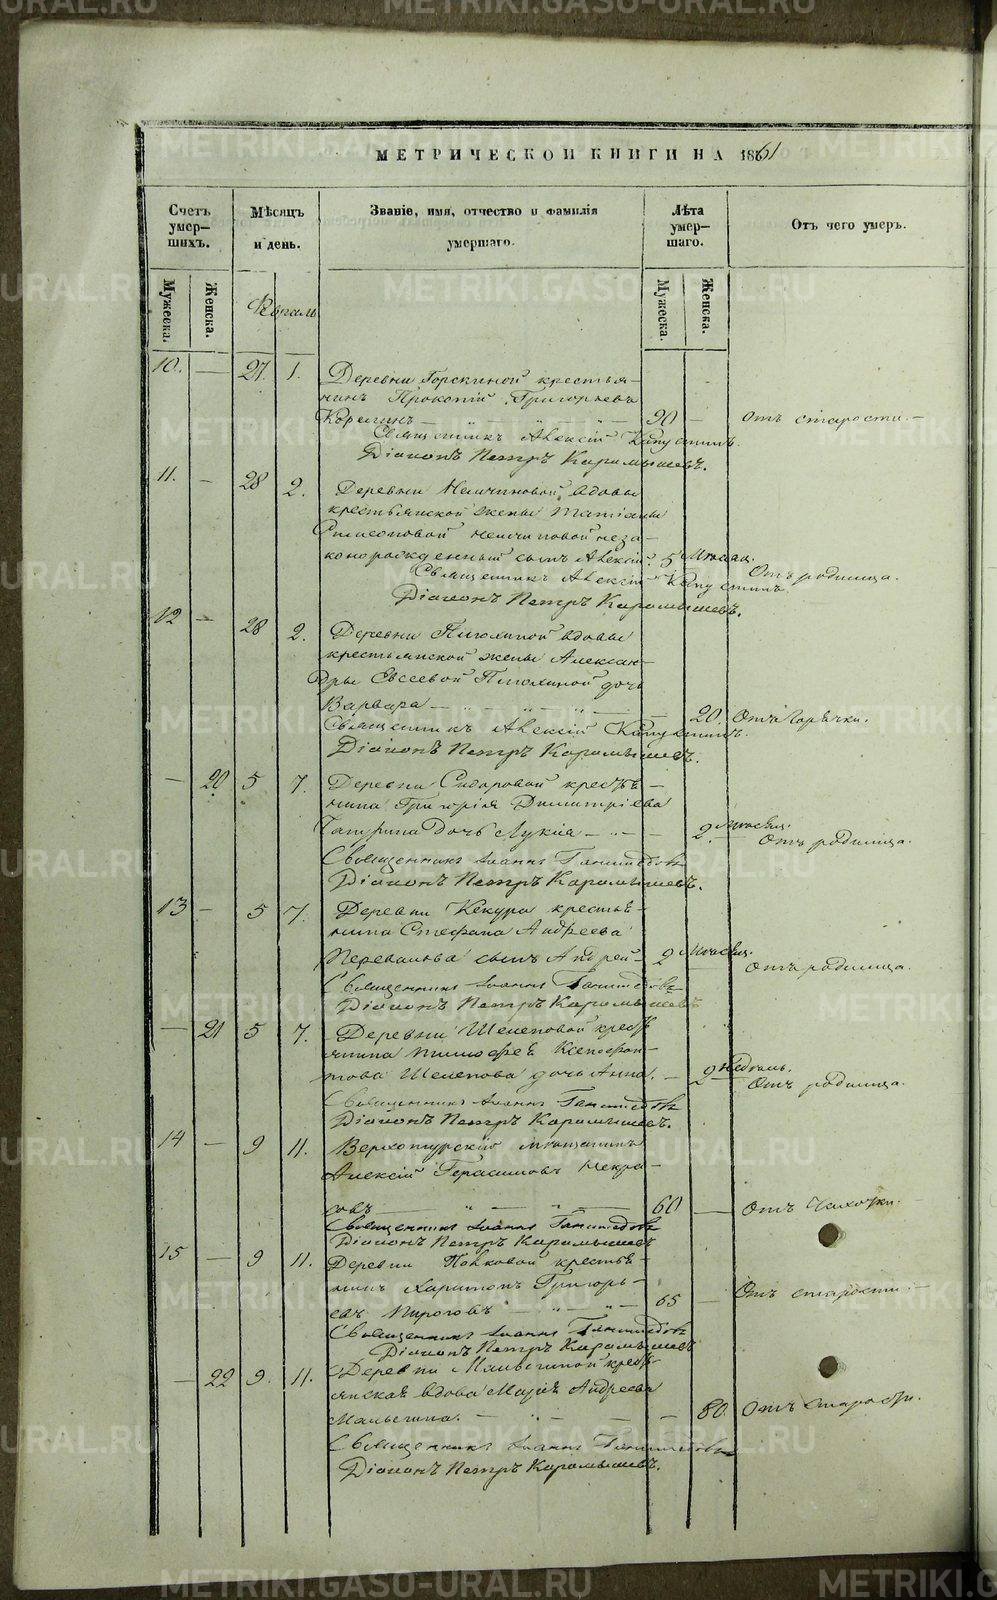 METRIKI.GASO-URAL.RU
МЕТРИЧЕСКОЙ КНИГИ НА 1861
Счетъ умер-шихъ.
Мѣсяцъ и день.
Званіе, имя, отчество и фамилія умершаго.
Лѣта умер-шаго.
Отъ чего умеръ.
Мужеска.
Женска.
Мужеска.
Женска.
10. — 27. 1. Деревни Горскиной крестья-
нинъ Прокопій Григорьевъ
90 — Отъ старости. —
Священникъ Алексій Капустинъ.
Діаконъ Петръ Карамышевъ.
11. — 28 2. Деревни Немчиновой вдовы
крестьянской жены Татіаны
Симеоновой Немчиновой неза-
конорожденный сынъ Алексій. 5 Мѣсяц.
Отъ родимца.
Священникъ Алексій Капустинъ.
Діаконъ Петръ Карамышевъ.
12 — 28 2. Деревни вдовы
крестьянской жены Александ-
ры Евсеевой дочь
Варвара — 20. Отъ Горячки.
Священникъ Алексій Капустинъ.
Діаконъ Петръ Карамышевъ.
— 20 5 7. Деревни Сидоровой крестья-
нина Григорія Димитріева
Дочь Лукія — 2. Мѣсяц.
Отъ родимца.
Священникъ Іоаннъ Ганимедовъ
Діаконъ Петръ Карамышевъ.
13 — 5 7. Деревни Кекура крестья-
нина Стефана Андреева
Перевалова сынъ Андрей — 2 Мѣсяц.
Отъ родимца.
Священникъ Іоаннъ Ганимедовъ
Діаконъ Петръ Карамышевъ
— 21 5 7. Деревни Шелеповой крест
янина Тимофея Ксенофон-
това Шелепова дочь Анна. — 2 Недѣль.
Отъ родимца.
Священникъ Іоаннъ Ганимедовъ
Діаконъ Петръ Карамышевъ.
14 — 9 11. Верхотурскій мѣщанинъ
Алексій Герасимовъ Некра-
совъ 60 — Отъ Чахотки.
Священникъ Іоаннъ Ганимедовъ
Діаконъ Петръ Карамышевъ
15 — 9 11. Деревни крестья-
нинъ Харитонъ Григорь-
евъ Пироговъ — 65 — Отъ старости. —
Священникъ Іоаннъ Ганимедовъ
Діаконъ Петръ Карамышевъ
— 22 9. 11. Деревни Мальгиной крест-
янская вдова Марія Андреева
Мальгина. — 80. Отъ Старости.
Священникъ Іоаннъ Ганимедовъ
Діаконъ Петръ Карамышевъ.